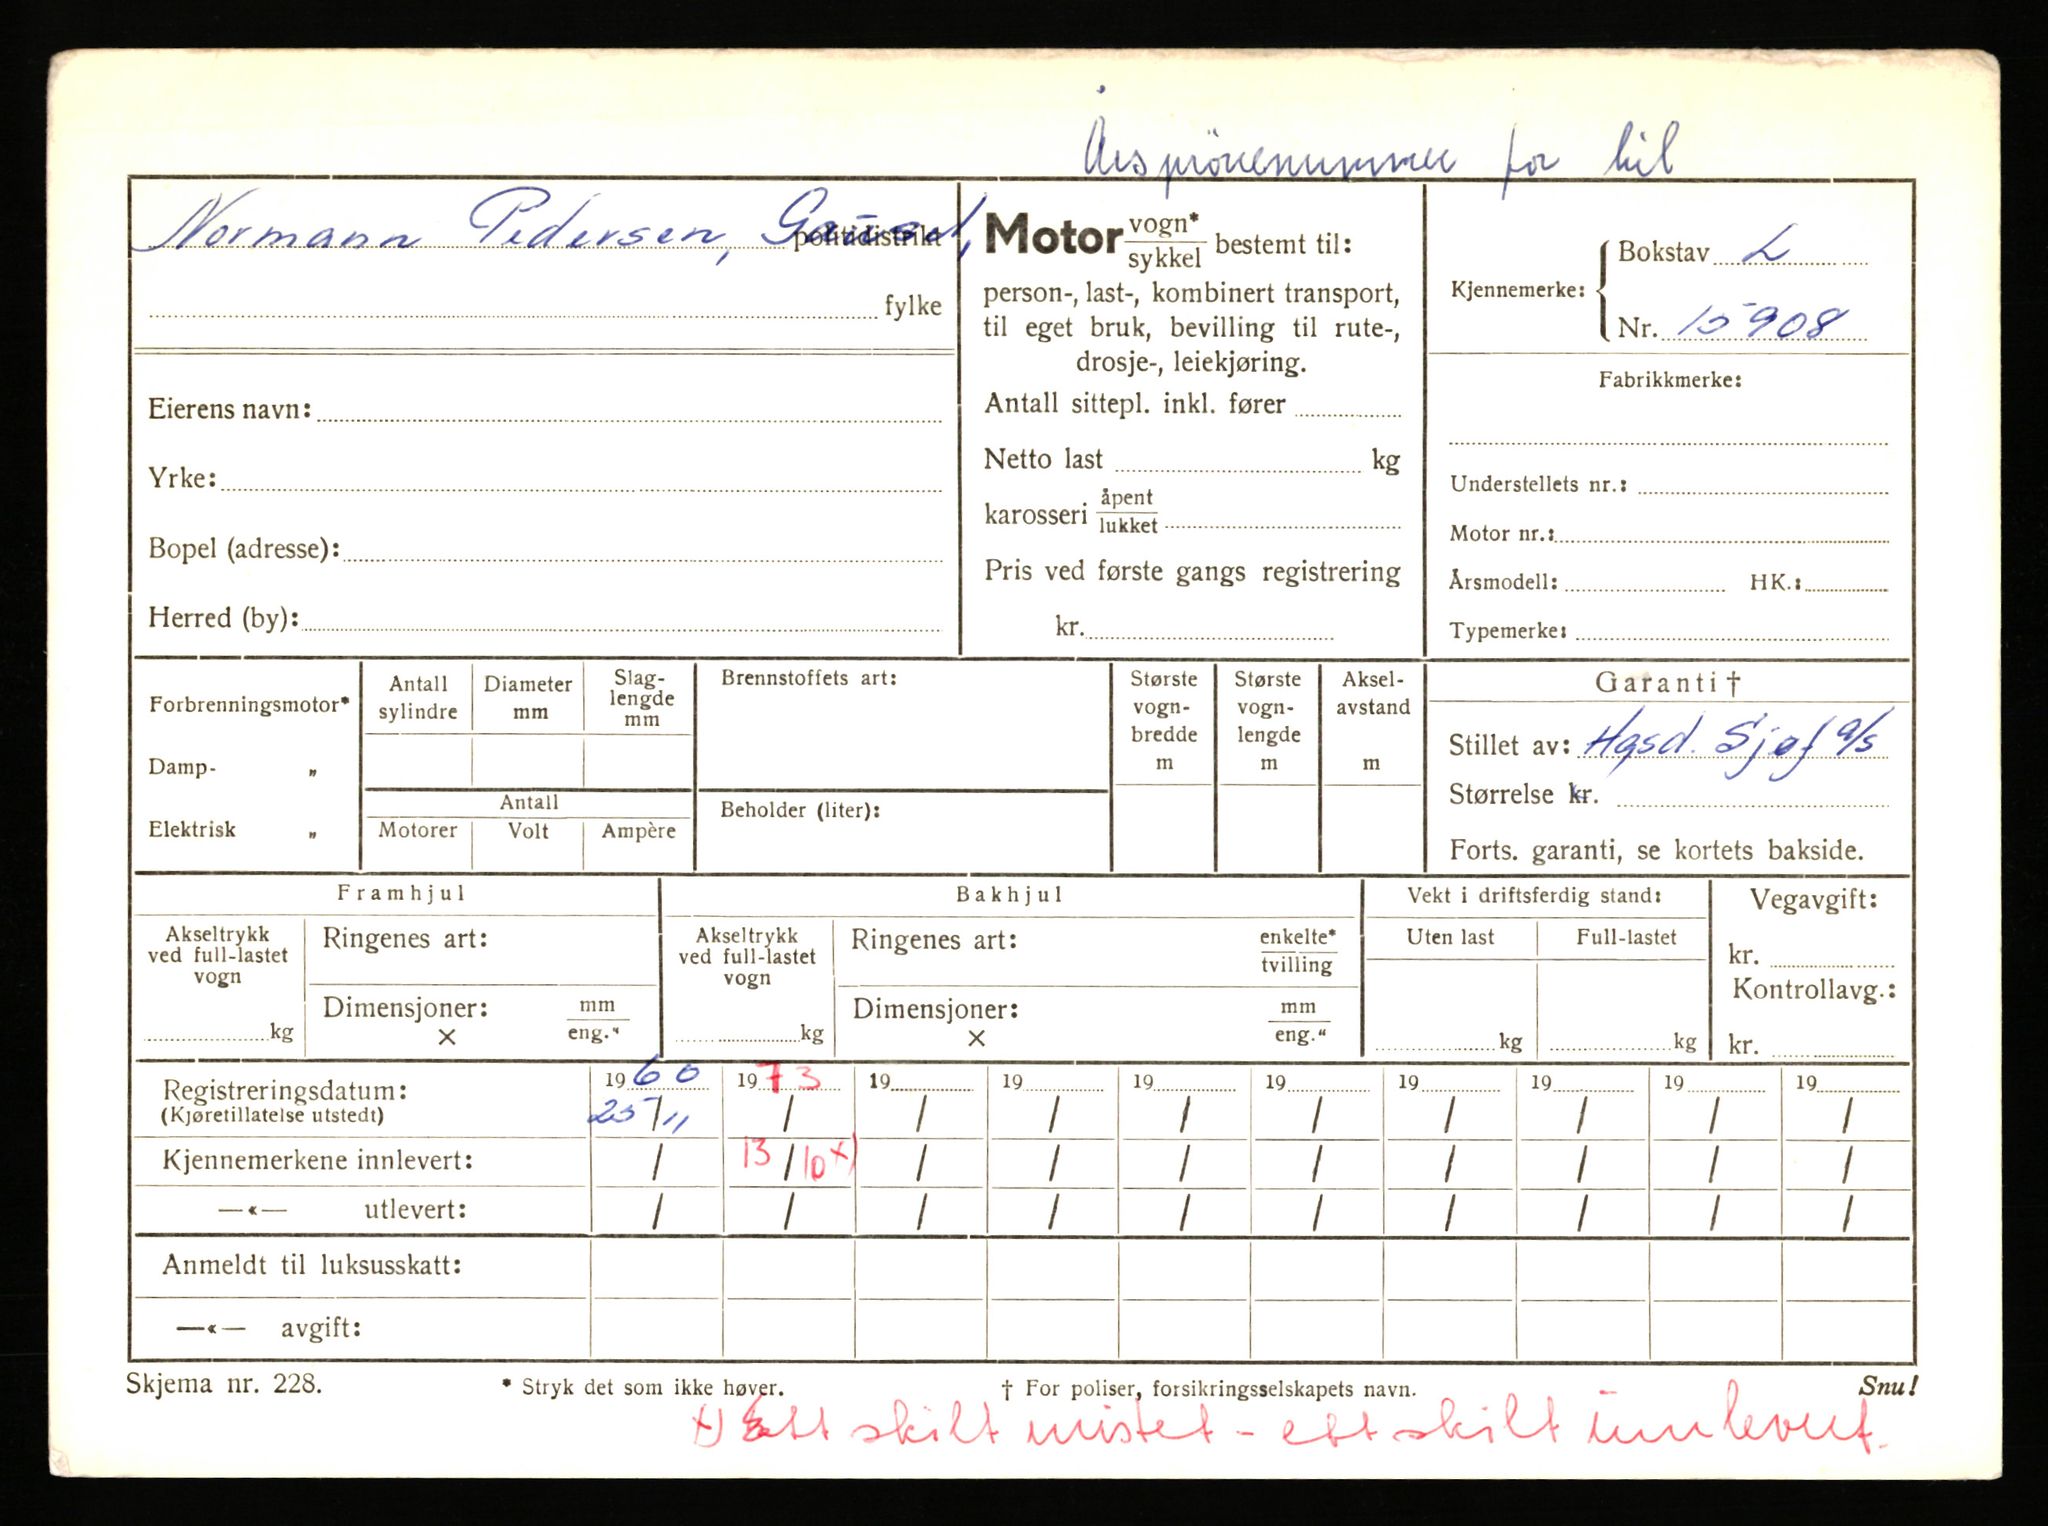 Årsprövenummer for bil
Normann Pedersen, Gausel, politidistrikt
fylke
Eierens navn:
Yrke:
Bopel (adresse):
Herred (by):
Motor vogn* / sykkel bestemt til:
person-, last-, kombinert transport,
til eget bruk, bevilling til rute-,
drosje-, leiekjøring.
Antall sittepl. inkl. fører
Netto last kg
karosseri åpent / lukket
Pris ved første gangs registrering
kr.
Kjennemerke: Bokstav L
Nr. 15908
Fabrikkmerke:
Understellets nr.:
Motor nr.:
Årsmodell: HK.:
Typemerke:
Forbrenningsmotor*
Damp- „
Elektrisk „
Antall sylindre
Diameter mm
Slag-lengde mm
Antall
Motorer Volt Ampère
Brennstoffets art:
Beholder (liter):
Største vogn-bredde m
Største vogn-lengde m
Aksel-avstand m
Garanti †
Stillet av: Hgsd. Sjøf a/s
Størrelse kr.
Forts. garanti, se kortets bakside.
Framhjul
Akseltrykk ved full-lastet vogn
kg
Ringenes art:
Dimensjoner: mm / eng."
×
Bakhjul
Akseltrykk ved full-lastet vogn
kg
Ringenes art: enkelte* / tvilling
Dimensjoner: mm / eng."
×
Vekt i driftsferdig stand:
Uten last Full-lastet
kg kg
Vegavgift:
kr.
Kontrollavg.:
kr.
Registreringsdatum: 1960 1973 19 19 19 19 19 19 19 19
(Kjøretillatelse utstedt) 25/11 / / / / / / / / /
Kjennemerkene innlevert: / 13/10 x) / / / / / / / /
—«— utlevert: / / / / / / / / / /
Anmeldt til luksusskatt:
—«— avgift:
Skjema nr. 228. * Stryk det som ikke høver. † For poliser, forsikringsselskapets navn. Snu!
x) Ett skilt mistet - ett skilt innlevert.